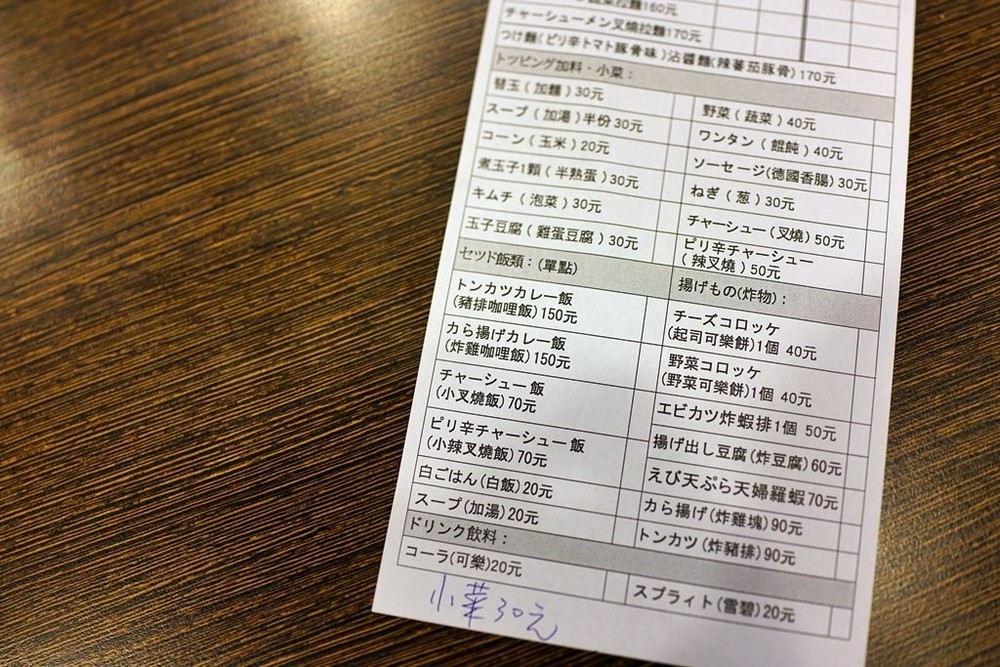 拉麵160元
チャーシューメン叉燒拉麵170元
つけ麵(ピリ辛トマト豚骨味)沾醬麵(辣蕃茄豚骨)170元
トッピング加料・小菜：
替玉(加麵)30元
野菜(蔬菜)40元
スープ(加湯)半份30元
ワンタン(餛飩)40元
コーン(玉米)20元
ソーセージ(德國香腸)30元
煮玉子1顆(半熟蛋)30元
ねぎ(葱)30元
キムチ(泡菜)30元
チャーシュー(叉燒)50元
玉子豆腐(雞蛋豆腐)30元
ピリ辛チャーシュー
(辣叉燒)50元
セツド飯類：(單點)
トンカツカレー飯
(豬排咖哩飯)150元
カら揚げカレー飯
(炸雞咖哩飯)150元
チャーシュー飯
(小叉燒飯)70元
ピリ辛チャーシュー飯
(小辣叉燒飯)70元
白ごはん(白飯)20元
スープ(加湯)20元
揚げもの(炸物)：
チーズコロッケ
(起司可樂餅)1個 40元
野菜コロッケ
(野菜可樂餅)1個 40元
エビカツ炸蝦排1個 50元
揚げ出し豆腐(炸豆腐)60元
えび天ぷら天婦羅蝦70元
カら揚げ(炸雞塊)90元
トンカツ(炸豬排)90元
ドリンク飲料：
コーラ(可樂)20元
スプライト(雪碧)20元
小菜30元